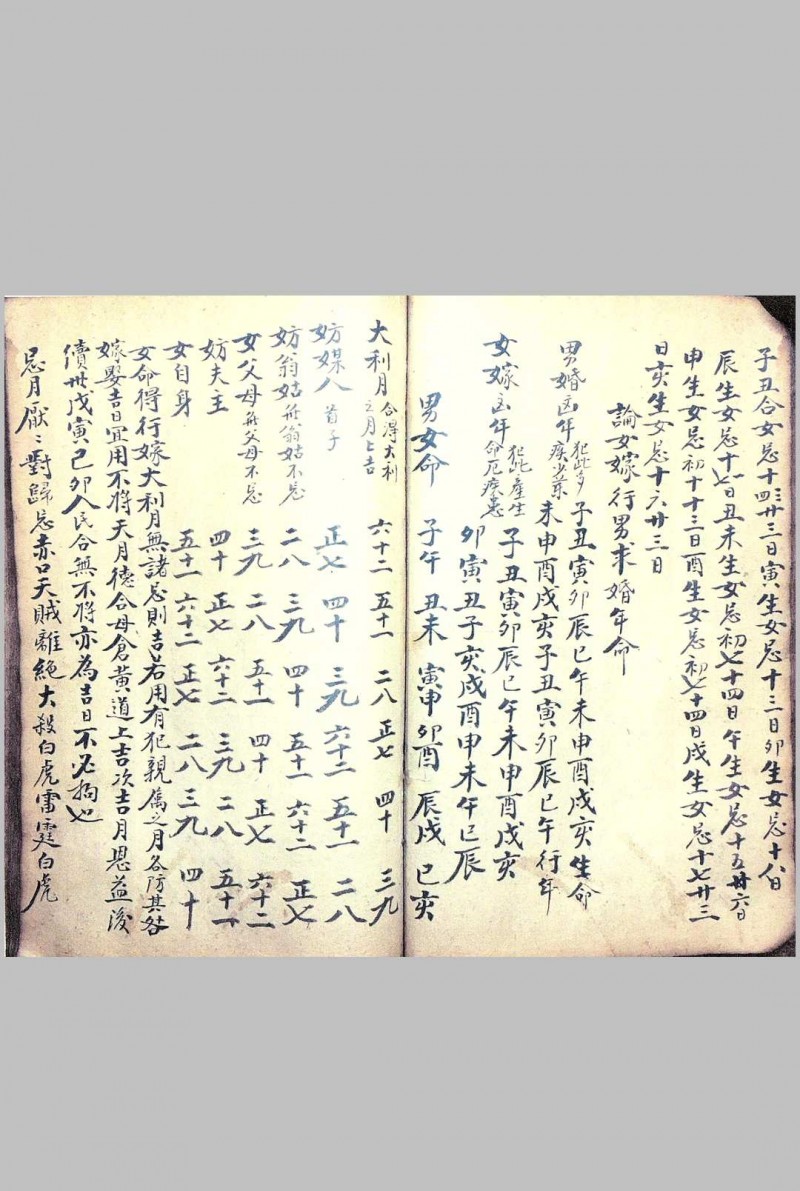 子丑合女忌十四廿三日寅生女忌十三日卯生女忌十八日
辰生女忌十七日丑未生女忌初七十四日午生女忌十五廿六日
申生女忌初十十三日酉生女忌初七十四日戌生女忌十七廿三
日亥生女忌十六廿三日
論女嫁行男求婚年命
男婚凶年 犯此多疾少業 子丑寅卯辰巳午未申酉戌亥生命
未申酉戌亥子丑寅卯辰巳午行年
女嫁凶年 犯此產生命厄疾患 子丑寅卯辰巳午未申酉戌亥
卯寅丑子亥戌酉申未午巳辰
男女命 子午 丑未 寅申 卯酉 辰戌 巳亥
大利月 合得大利之月上吉 六十二 五十一 二八 正七 四十 三九
妨媒人 首子 正七 四十 三九 六十二 五十一 二八
妨翁姑 無翁姑不忌 二八 三九 四十 五十一 六十二 正七
女父母 無父母不忌 三九 二八 五十一 四十 正七 六十二
妨夫主 四十 正七 六十二 三九 二八 五十一
女自身 五十一 六十二 正七 二八 三九 四十
女命得行嫁大利月無諸忌則吉若用有犯親屬之月各防其咎
嫁娶吉日宜用不將天月德合母倉黃道上吉次吉月恩益後
續世戊寅己卯人民合無不將亦為吉日不必拘也
忌月厭々對歸忌赤口天賊離絕大殺白虎雷霆白虎